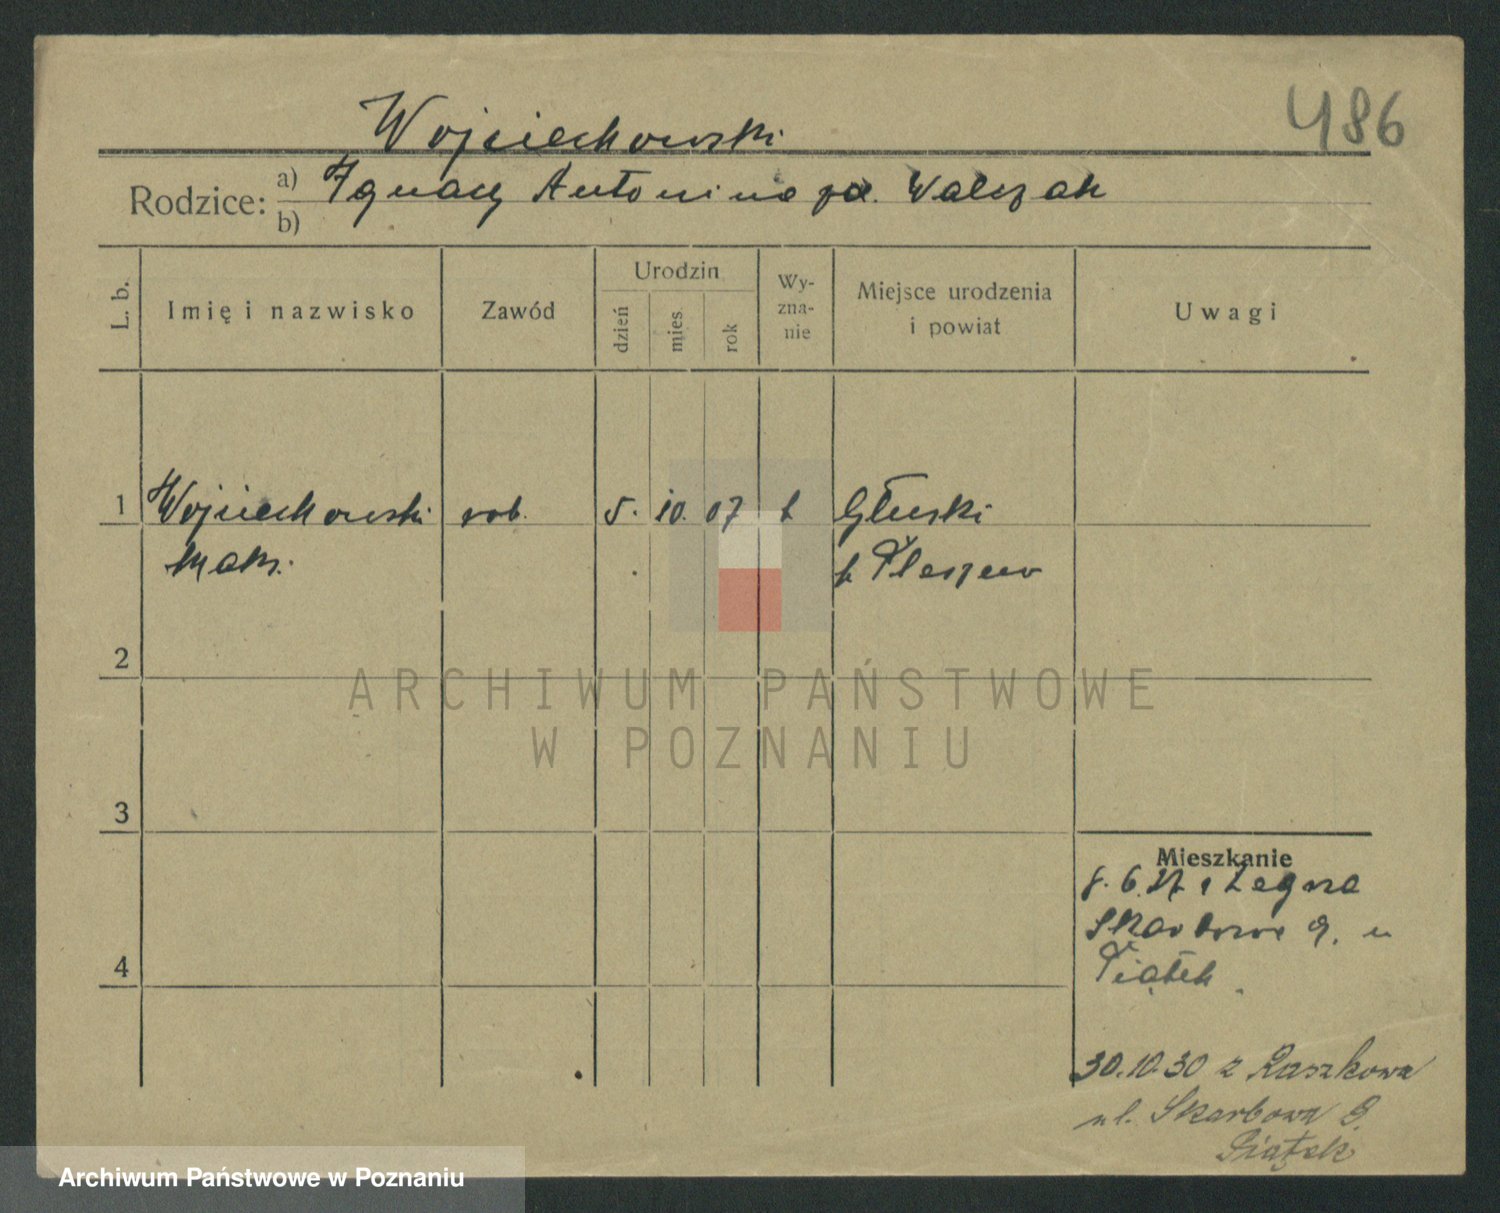 486
Wojciechowski
Rodzice: a) Ignacy Antonina zd. Walczak
b)
L. b.
Imię i nazwisko
Zawód
Urodzin
dzień
mies.
rok
Wy-
zna-
nie
Miejsce urodzenia
i powiat
Uwagi
1 Wojciechowski rob. 5. 10. 07 k Głuski
Maks. p Pleszew
2
ARCHIWUM PAŃSTWOWE
W POZNANIU
3
Mieszkanie
Skarbowa 9. u
Piątek
4
30.10.30 z Raszkowa
ul. Skarbowa 9.
Piątek
Archiwum Państwowe w Poznaniu